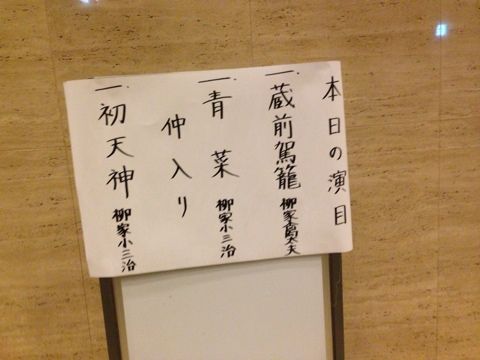 本日の演目
一.蔵前駕籠 柳家
一.青菜 柳家小三治
仲入り
一.初天神 柳家小三治